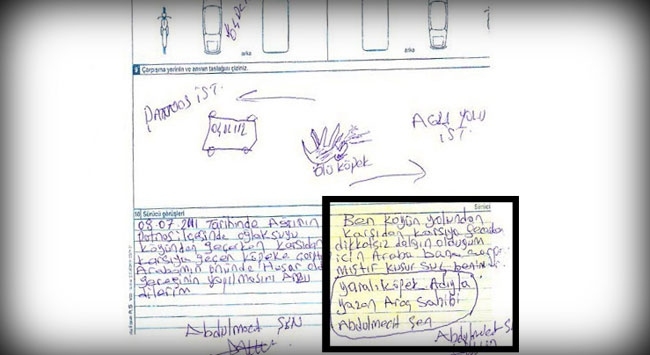 arka
arka
9 Çarpışma yerinin ve anının taslağını çiziniz.
PATNOS İST.
AĞRI YOLU
İST.
ölü köpek
10 Sürücü görüşleri
08.07.2011 Tarihinde Ağrının
Patnos ilçesinde
köyünden geçerken karşıdan
karşıya geçen köpeğe
Arabamın önünde Hasar
gereğinin yapılmasını Arzu
ederim
Abdulmecit ŞEN
Ben köyün yolundan
karşıdan karşıya
dikkatsiz dalgın olduğum
için Araba bana
mıştır kusur suç
yaralı köpek Adıyla
yazan Araç Sahibi
Abdulmecit Şen